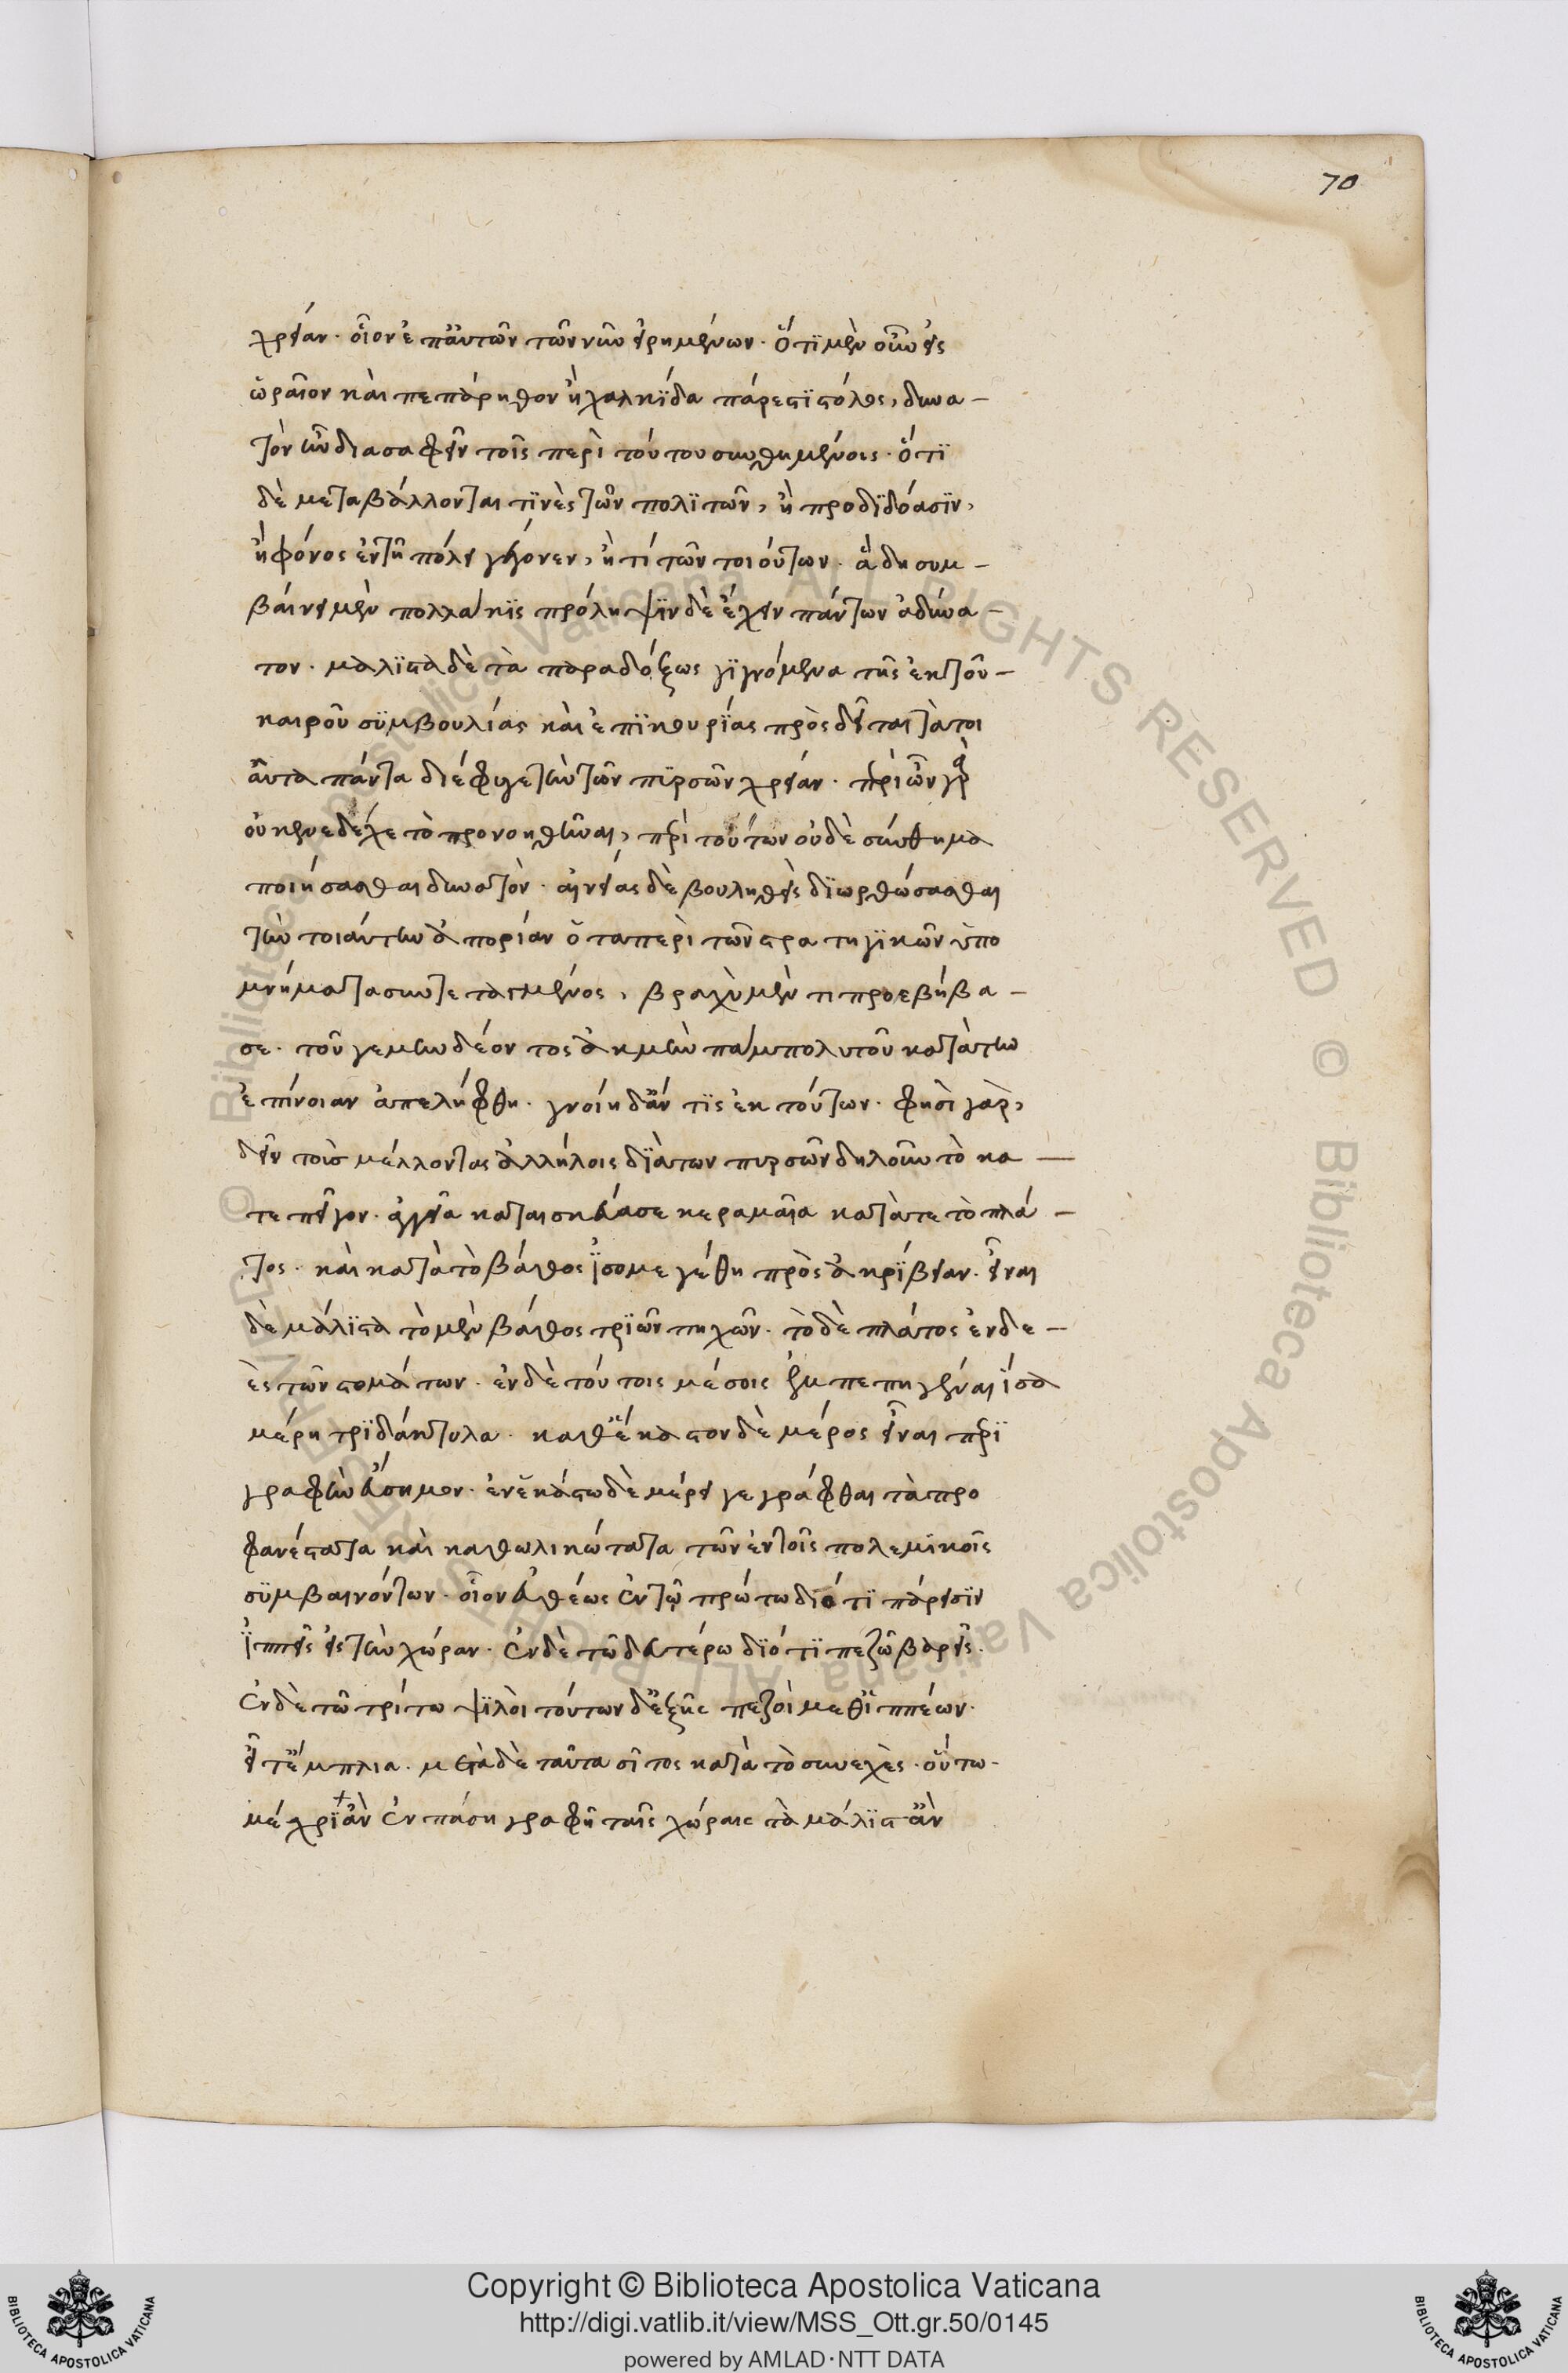 70
χρείαν. οἷον ἐπ᾽ αὐτῶν τῶν νῦν εἰρημένων. ὅτι μὲν οὖν εἰς
ὠραῖον καὶ πεπάρηθον ἢ χαλκίδα πάρεστι στόλος, δυνα-
τὸν ἦν διασαφεῖν τοῖς περὶ τούτου συνθημένοις. ὅτι
δὲ μεταβάλλονται τινὲς τῶν πολιτῶν, ἢ προδιδόασιν,
ἢ φόνος ἐν τῇ πόλει γέγονεν, ἤ τι τῶν τοιούτων. ἃ δὴ συμ-
βαίνει μὲν πολλάκις πρόληψιν δὲ ἔχειν πάντων ἀδύνα-
τον. μάλιστα δὲ τὰ παραδόξως γιγνόμενα τῆς ἐκ τοῦ-
καιροῦ συμβουλίας καὶ ἐπικουρίας προσδεῖται τὰ τοι
αῦτα πάντα διέφυγε τὴν τῶν πυρσῶν χρείαν. περὶ ὧν γὰρ
οὐκ ἐνεδέχετο προνοηθῆναι, περὶ τούτων οὐδὲ σύνθημα
ποιήσασθαι δυνατόν. αἰνείας δὲ βουληθεὶς διωρθώσασθαι
τὴν τοιαύτην ἀπορίαν ὁ τὰ περὶ τῶν στρατηγικῶν ὑπο
μνήματα συντεταγμένος, βραχὺ μέν τι προεβήβα-
σε. τοῦ γε μὴν δέοντος ἀκμὴν πάμπολυ τοῦ κατὰ τὴν
ἐπίνοιαν ἀπελήφθη. γνοίη δ᾽ ἄν τις ἐκ τούτων. φησὶ γὰρ,
δεῖν τοὺς μέλλοντας ἀλλήλοις διὰ των πυρσῶν δηλοῦν τὸ κα-
τεπεῖγον. ἀγγεῖα κατασκευάσε κεραμαῖα κατά τε τὸ πλά-
τος. καὶ κατὰ τὸ βάθος ἰσομεγέθη πρὸς ἀκρίβειαν. εἶναι
δὲ μάλιστα τὸ μὲν βάθος τριῶν πηχῶν. τὸ δὲ πλάτος ἐνδε-
ὲς τῶν στομάτων. ἐν δὲ τούτοις μέσοις ἐμπεπηγέναι ἴσα
μέρη τριδάκτυλα. καθ᾽ ἕκαστον δὲ μέρος εἶναι περι
γραφὴν εὔσημον. ἐν ἑκάστω δὲ μέρει γεγράφθαι τὰ προ
φανέστατα καὶ καθωλικώτατα τῶν ἐν τοῖς πολεμικοῖς
συμβαινόντων. οἷον εὐθέως ἐν τῷ πρώτω διότι πάρεισιν
ἱππεῖς εἰς τὴν χώραν. ἐν δὲ τῶ δευτέρω διότι πεζῶ βαρεῖς.
ἐν δὲ τῶ τρίτω ψιλοὶ τούτων δ᾽ ἑξῆς πεζοὶ μεθ᾽ ἱππέων.
εἶτ᾽ ἔμπλια. μετὰ δὲ ταῦτα σῖτος κατὰ τὸ συνεχές. οὕτω-
μέχρι ἂν ἐν πάση γραφῆ ταῖς χώραις τὰ μάλιστ᾽ ἂν
Copyright © Biblioteca Apostolica Vaticana
http://digi.vatlib.it/view/MSS_Ott.gr.50/0145
powered by AMLAD·NTT DATA